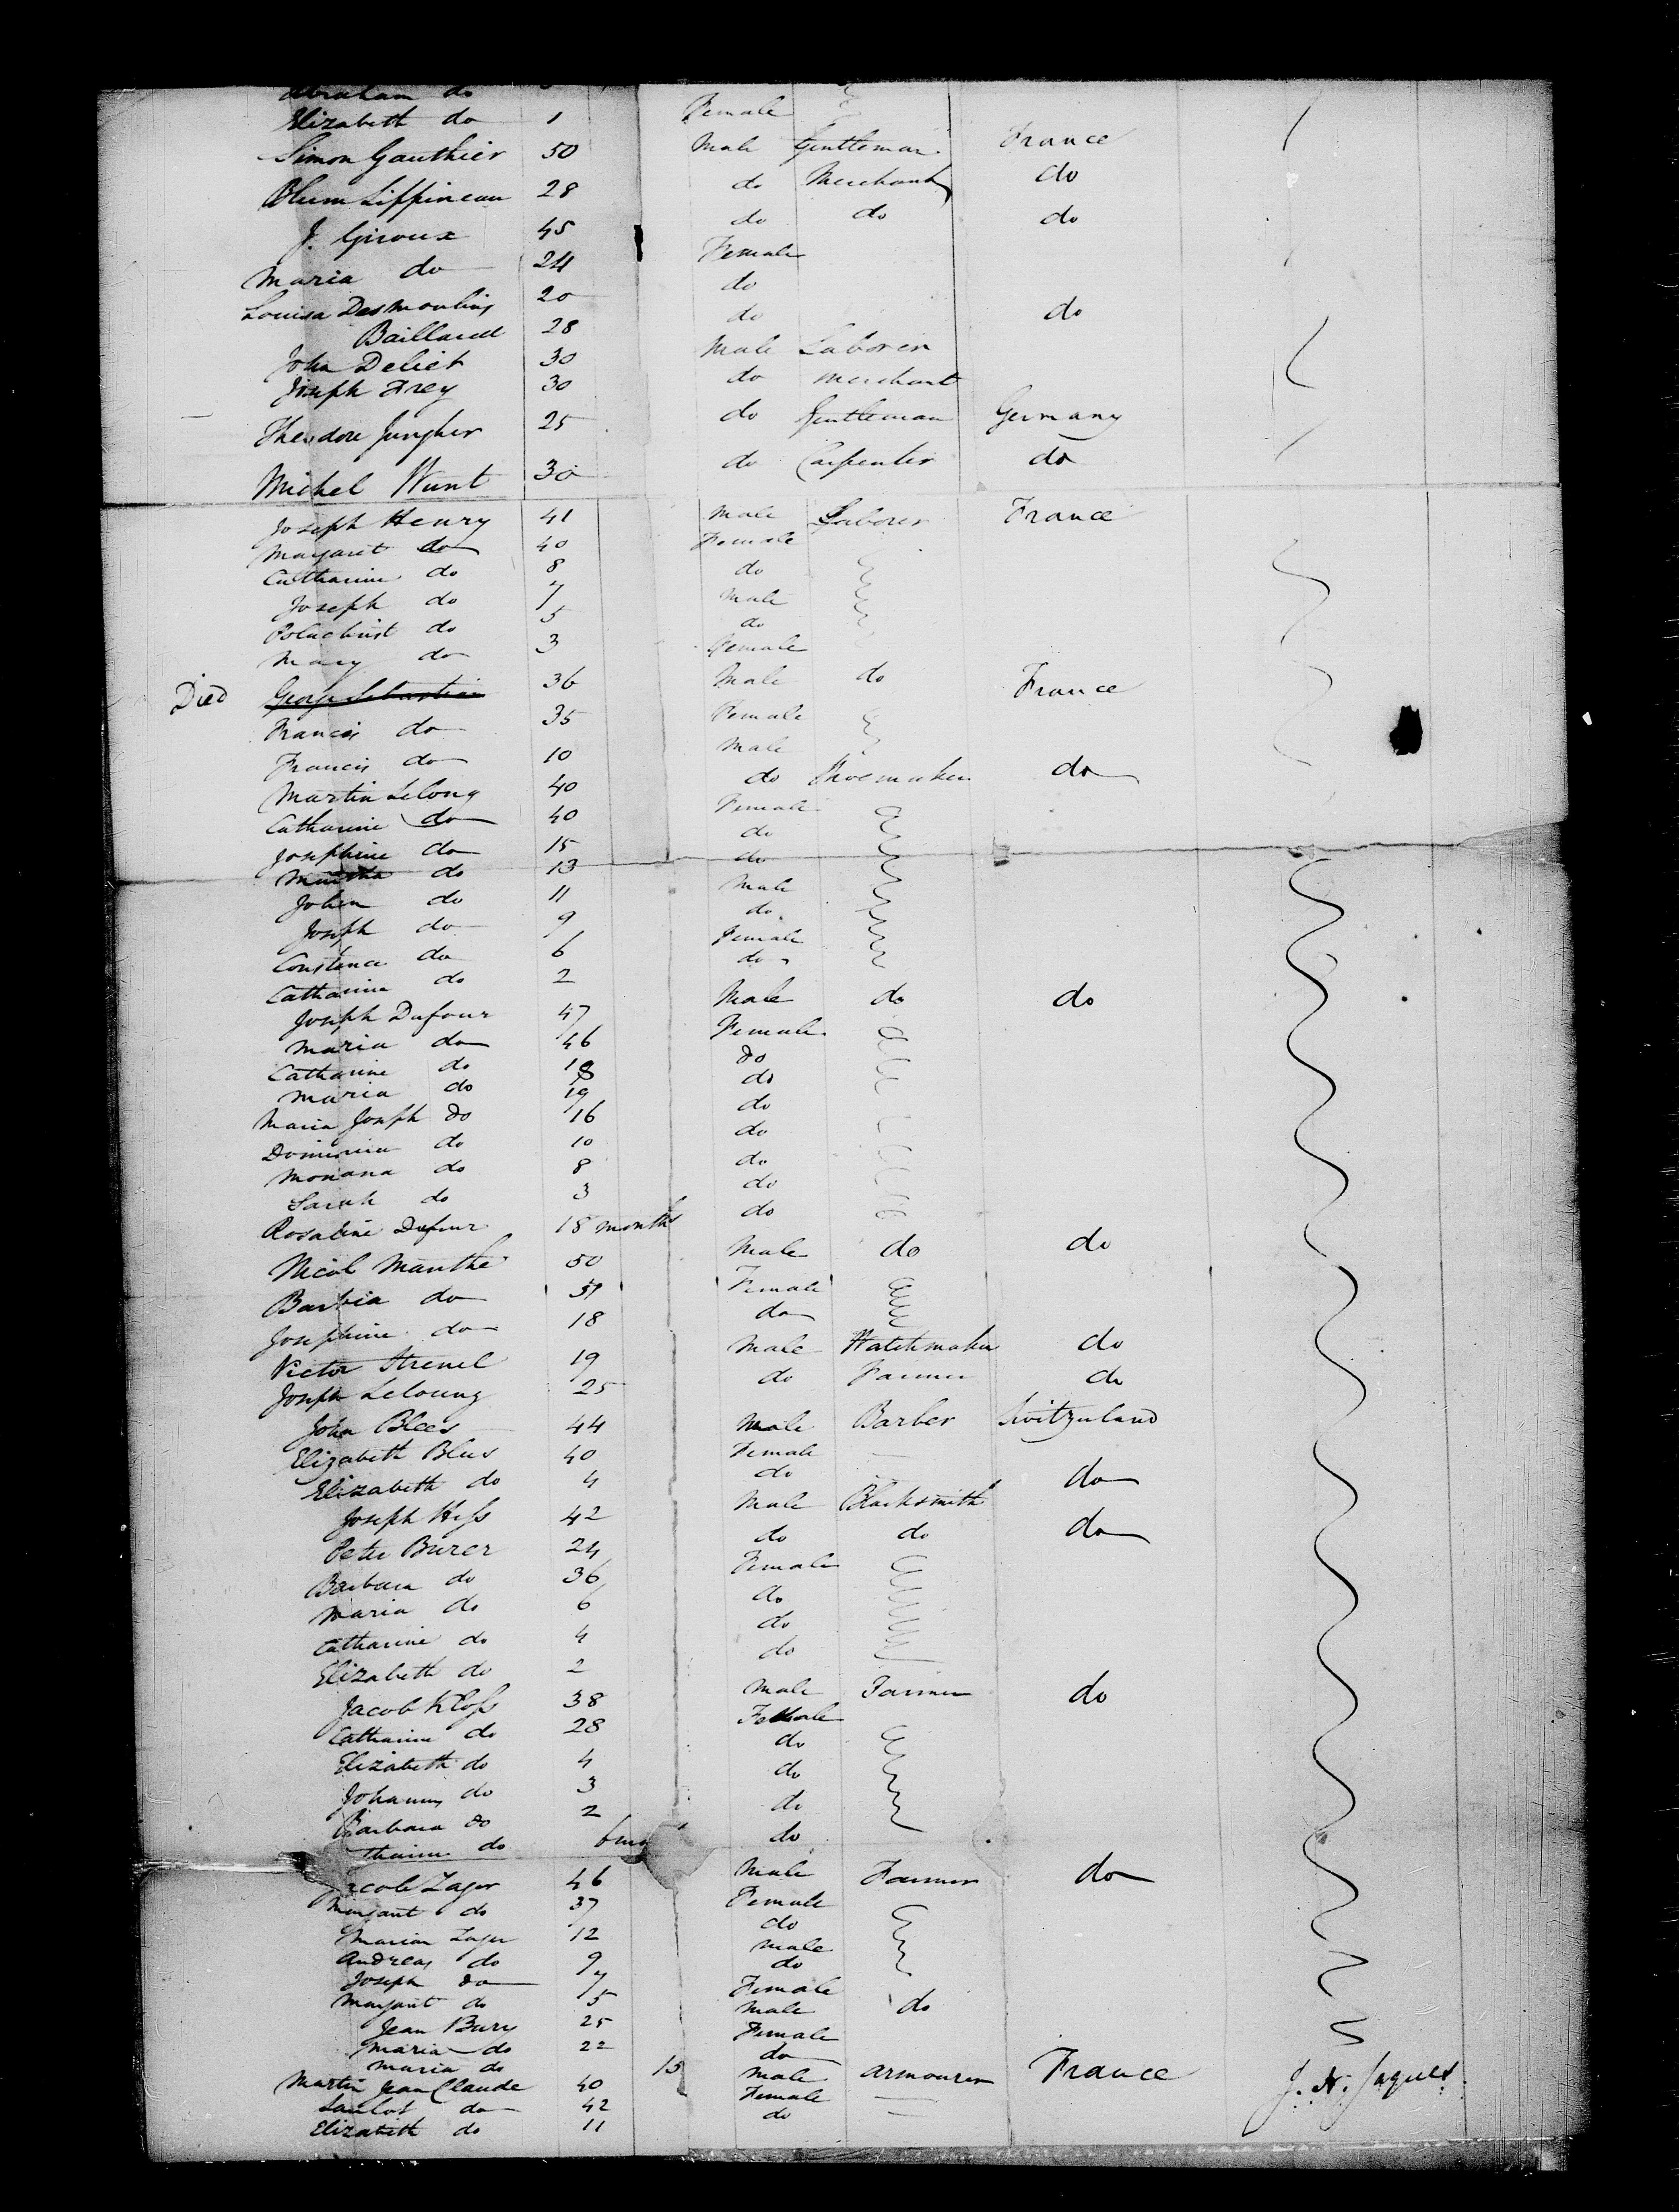 Abraham do
Elizabeth do 1 Female
Simon Gauthier 50 Male Gentleman France
Blum Lippincau 28 do Merchant do
J. Giroux 45 do do do
Maria do 24 Female
Louisa Desmoulins 20 do
Baillard 28 do do
John Deliet 30 Male Laborer
Joseph Frey 30 do merchant
Theodore Jungher 25 do Gentleman Germany
Michel Wunt 30 do Carpenter do
Joseph Henry 41 Male Laborer France
Margaret do 40 Female
Catharine do 8 do
Joseph do 7 male
do 5 do
Mary do 3 Female
Died George Sebastian 36 Male do France
Francis do 35 Female
Francis do 10 Male
Martin Lelong 40 do Shoemaker do
Catharine do 40 Female
Josephine do 15 do
Martha do 13 do
John do 11 Male
Joseph do 9 do
Constance do 6 Female
Catharine do 2 do
Joseph Dufour 47 Male do do
Maria do 46 Female
Catharine do 18 do
Maria do 19 do
Maria Joseph do 16 do
do 10 do
Monana do 8 do
Sarah do 3 do
Rosaline Dufour 18 months do
Nicol Manthe 50 Male do do
Barbia do 51 Female
Josephine do 18 do
Victor Strenel 19 Male Watchmaker do
Joseph Leloung 25 do Farmer do
John Blees 44 Male Barber Switzerland
Elizabeth Blees 40 Female
Elizabeth do 4 do
Joseph Hess 42 Male Blacksmith do
Peter Burer 24 do do do
Barbara do 36 Female
Maria do 6 do
Catharine do 4 do
Elizabeth do 2 do
Jacob Kloss 38 Male Farmer do
Catharine do 28 Female
Elizabeth do 4 do
Johanns do 3 do
Barbara do 2 do
tharine do 6 mo do
acob Zager 46 Male Farmer do
Margaret do 37 Female
Marian Zager 12 do
Andreas do 9 male
Joseph do 7 do
Margaret do 5 Female
Jean Bury 25 Male do
Maria do 22 Female
maria do 15 do
Martin Jean Claude 40 Male armourer France J. N. Jaques
do 42 Female
Elizabeth do 11 do